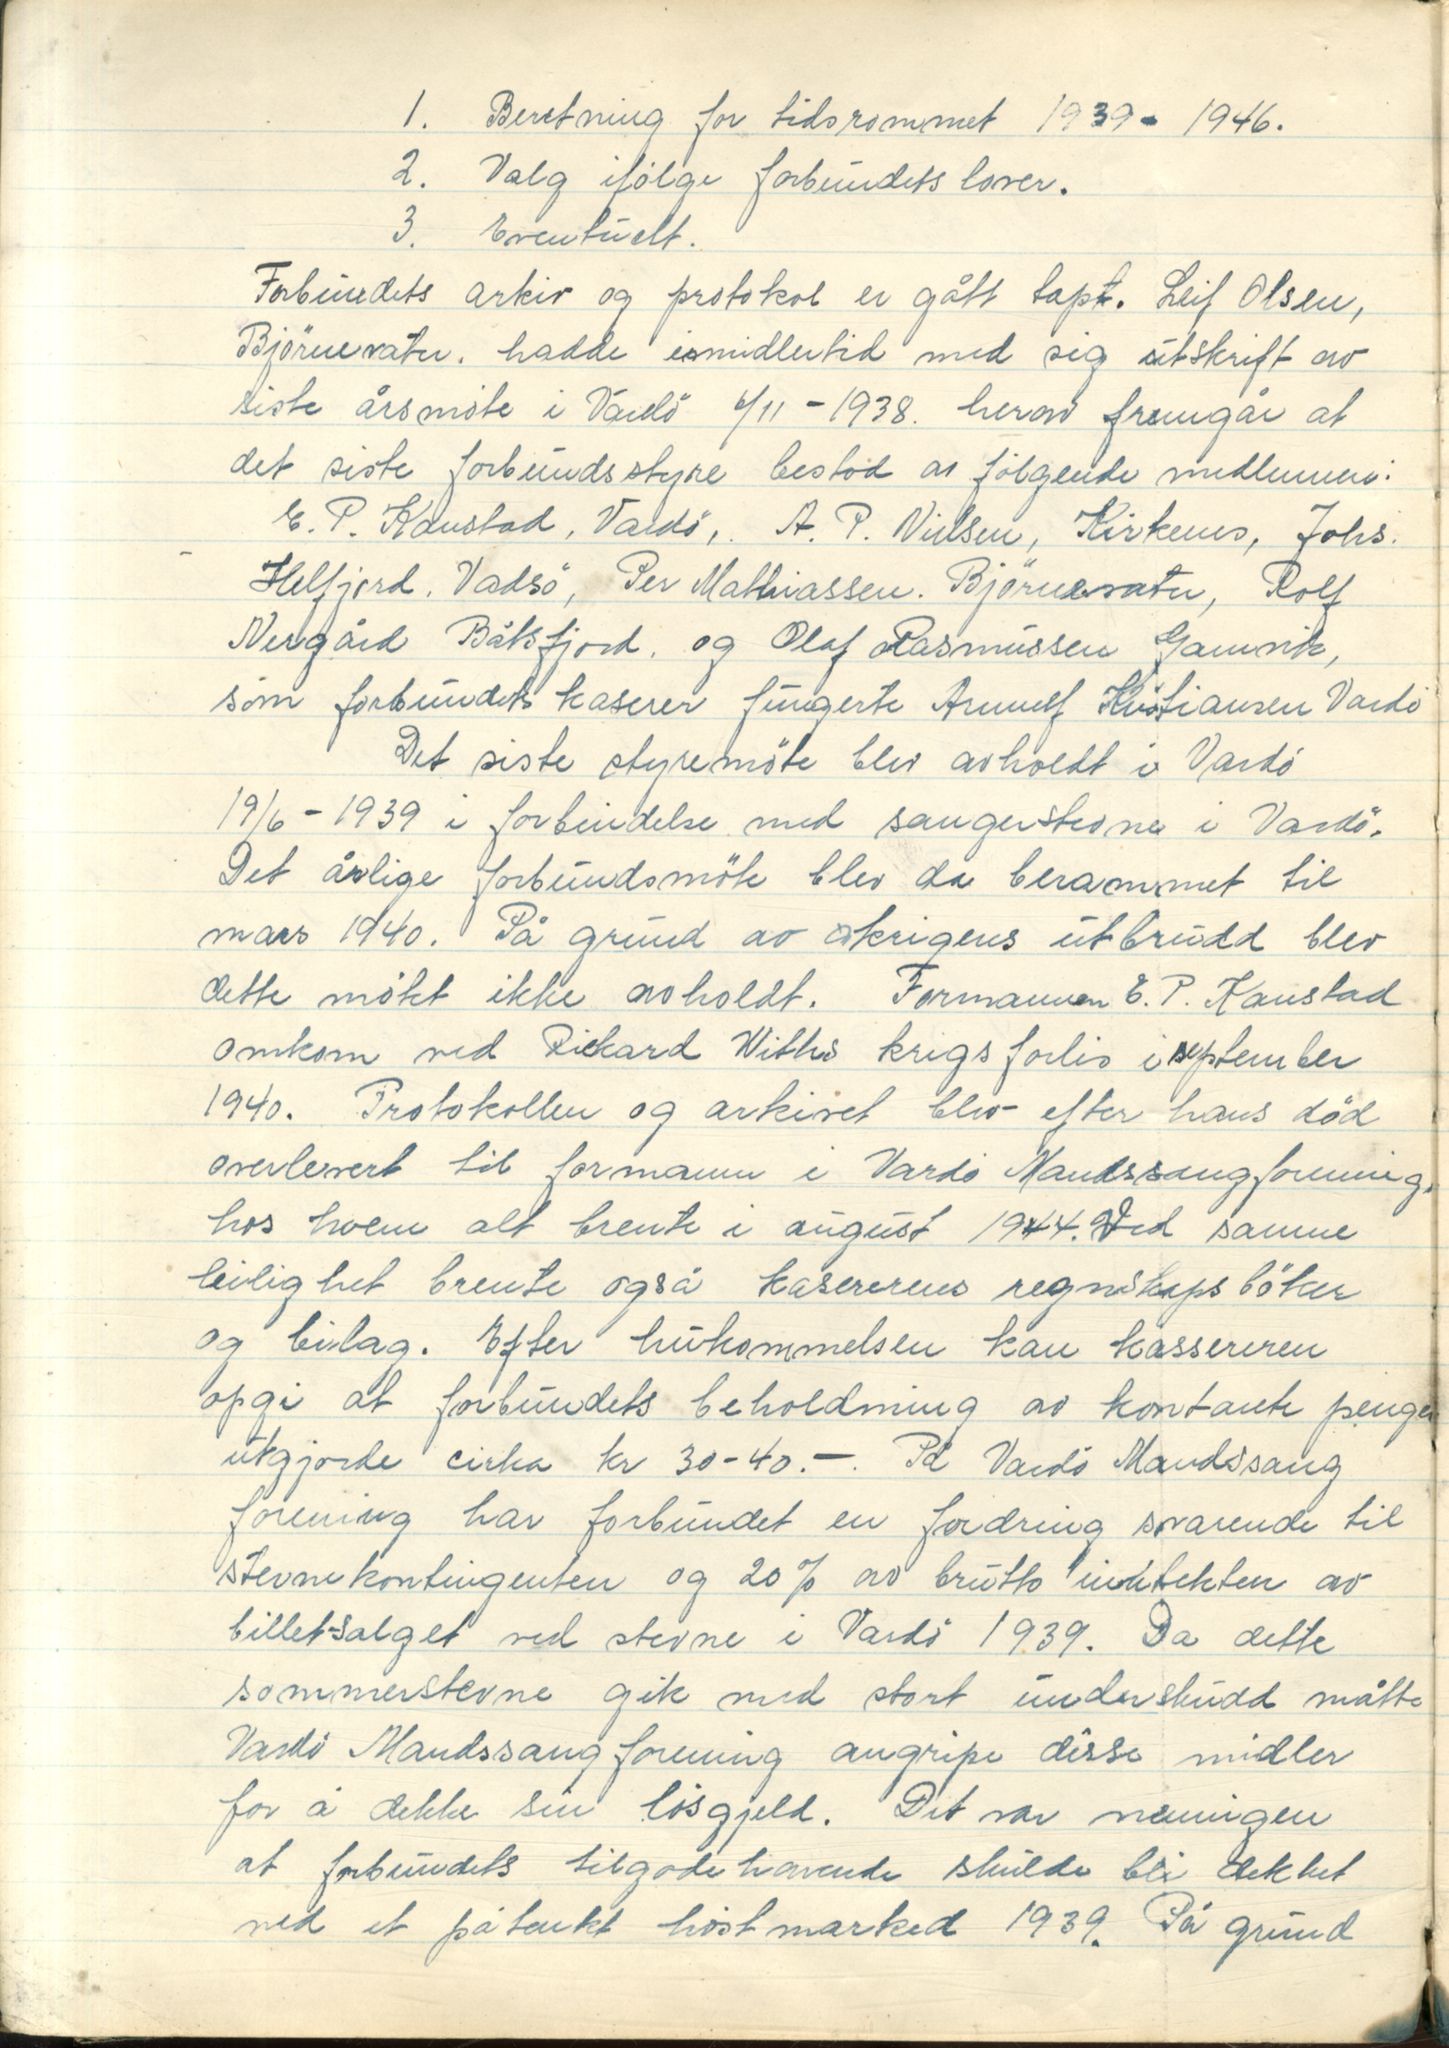 1. Beretning for tidsrommet 1939 - 1946.
2. Valg ifölge forbundets lover.
3. Eventuelt.
Forbundets arkiv og protokol er gått tapt. Leif Olsen,
Björnevatn. hadde imidlertid med sig utskrift av
siste årsmöte i Vardö 6/11 - 1938. herav fremgår at
det siste forbundsstyre bestod av fölgende medlemmer:
E. P. Kaustad, Vardö, A. P. Nielsen, Kirkenes, Johs.
Helfjord, Vadsö, Per Mathiassen. Björnevatn, Rolf
Nergård Båtsfjord. og Olaf Rasmussen Gamvik,
som forbundets kaserer fungerte Arnulf Kristiansen Vardö
Det siste styremöte blev avholdt i Vardö
19/6 - 1939 i forbindelse med sangerstevne i Vardö.
Det årlige forbundsmöte blev da berammet til
mars 1940. På grund av krigens utbrudd blev
dette mötet ikke avholdt. Formannen E. P. Kaustad
omkom ved Rickard Withs krigsforlis i september
1940. Protokollen og arkivet blev efter hans död
overlevert til formann i Vardö Mandssangforening.
hos hvem alt brente i august 1944. Ved samme
leilighet brente også kasererens regnskapsböker
og bilag. Efter hukommelsen kan kassereren
opgi at forbundets beholdning av kontante penger
utgjorde cirka kr 30-40.-. På Vardö Mandssang
forening har forbundet en fordring svarende til
stevnekontingenten og 20% av brutto inntekten av
billet-salget ved stevne i Vardö 1939. Da dette
sommerstevne gik med stort underskudd måtte
Vardö Mandssangforening angripe disse midler
for å dekke sin lösgjeld. Det var meningen
at forbundets tilgodehavende skulde bli dekket
ved et påtenkt höstmarked 1939. På grund